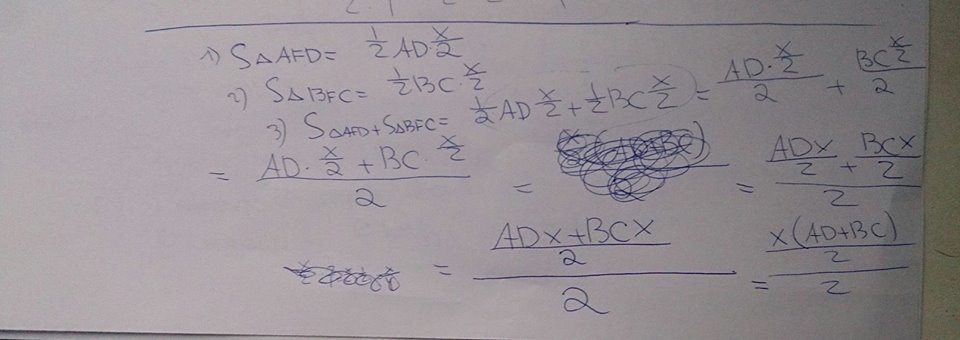 1) S△AFD = 1/2 AD x/2
2) S△BFC = 1/2 BC · x/2
3) S△AFD + S△BFC = 1/2 AD x/2 + 1/2 BC x/2 = (AD · x/2)/2 + (BC x/2)/2
= (AD · x/2 + BC · x/2)/2 = = (ADx/2 + BCx/2)/2
= ((ADx + BCx)/2)/2 = (x(AD+BC)/2)/2